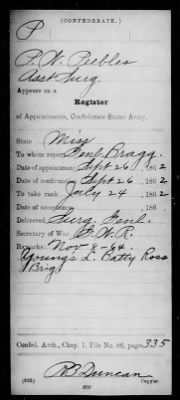 (CONFEDERATE.)
P
P. W. Peebles
Asst Surg.
Appears on a
Register
of Appointments, Confederate States Army.
State Miss
To whom report Genl. Bragg.
Date of appointment Sept 26, 1862
Date of confirmation Sept 26, 1862
To take rank July 24, 1862
Date of acceptance , 186 .
Delivered Surg. Genl.
Secretary of War G. W. R.
Remarks: Nov 8-64.
Young's L. Batty Ross
Brig
Confed. Arch., Chap. 1, File No. 86, page 335
RB Duncan
Copyist.